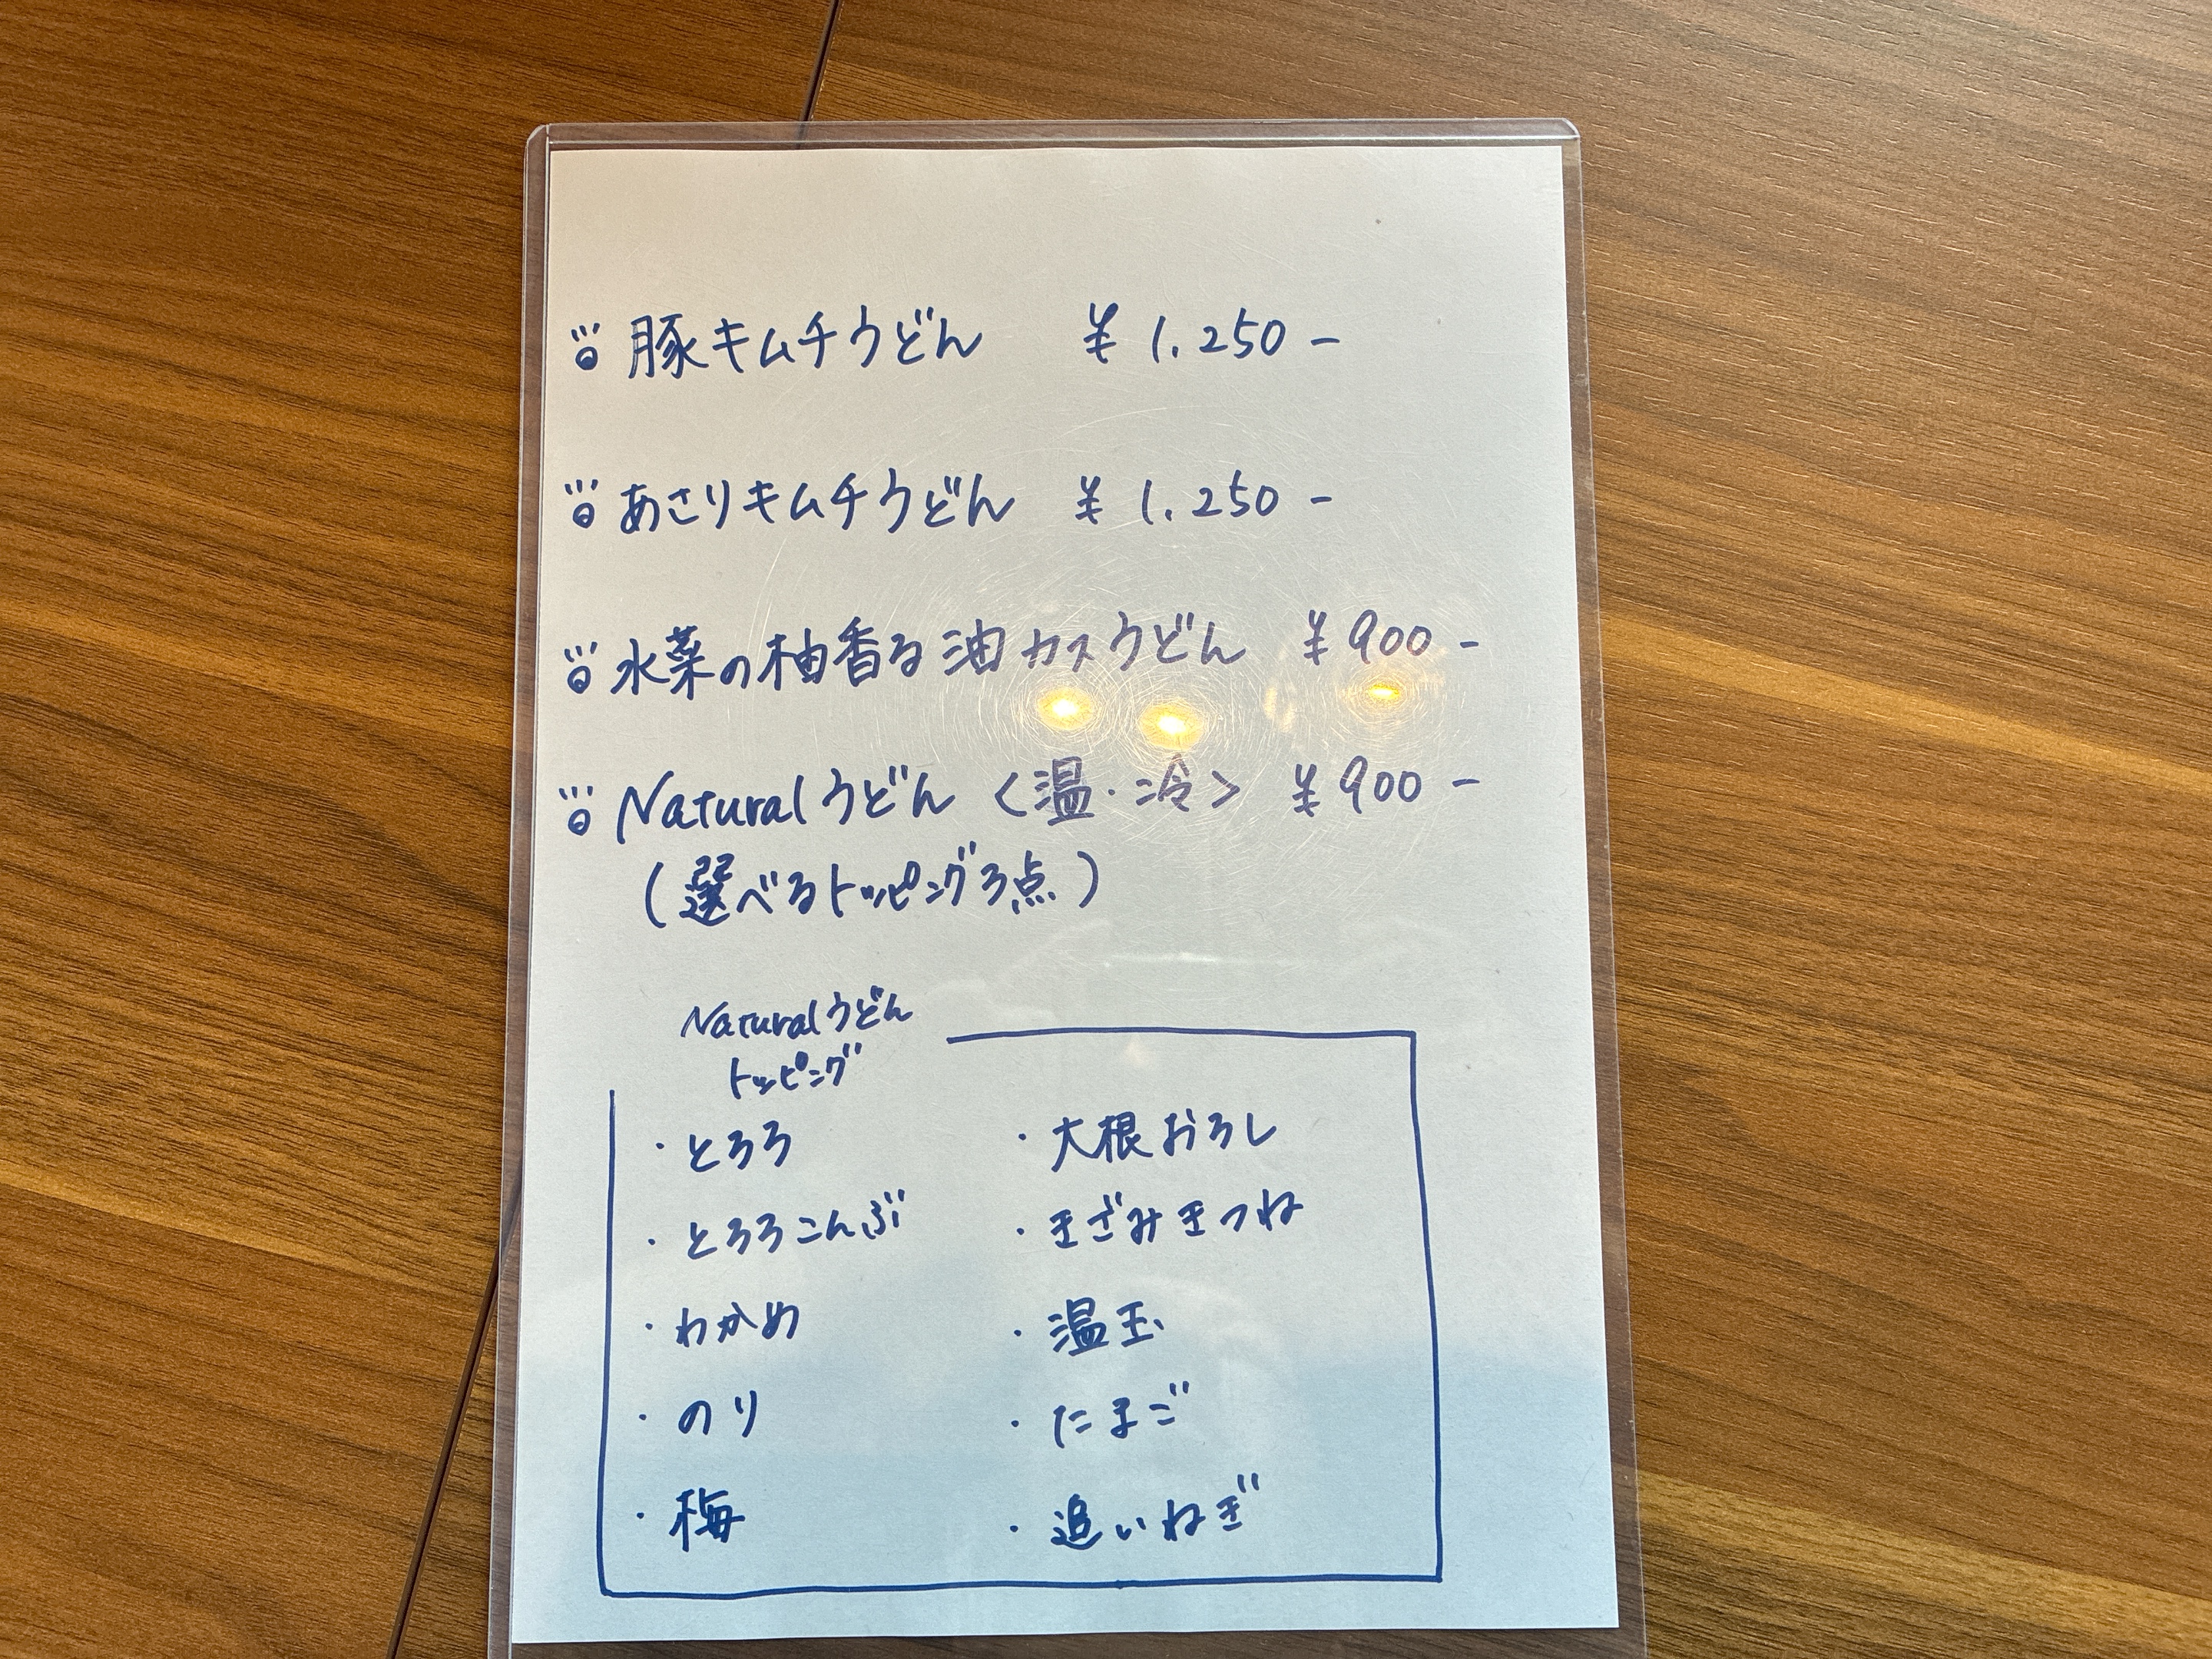 豚キムチうどん ¥1.250-
あさりキムチうどん ¥1.250-
水菜の柚香る油カスうどん ¥900-
Naturalうどん〈温・冷〉 ¥900-
(選べるトッピング3点)
Naturalうどん
トッピング
・とろろ ・大根おろし
・とろろこんぶ ・きざみきつね
・わかめ ・温玉
・のり ・たまご
・梅 ・追いねぎ